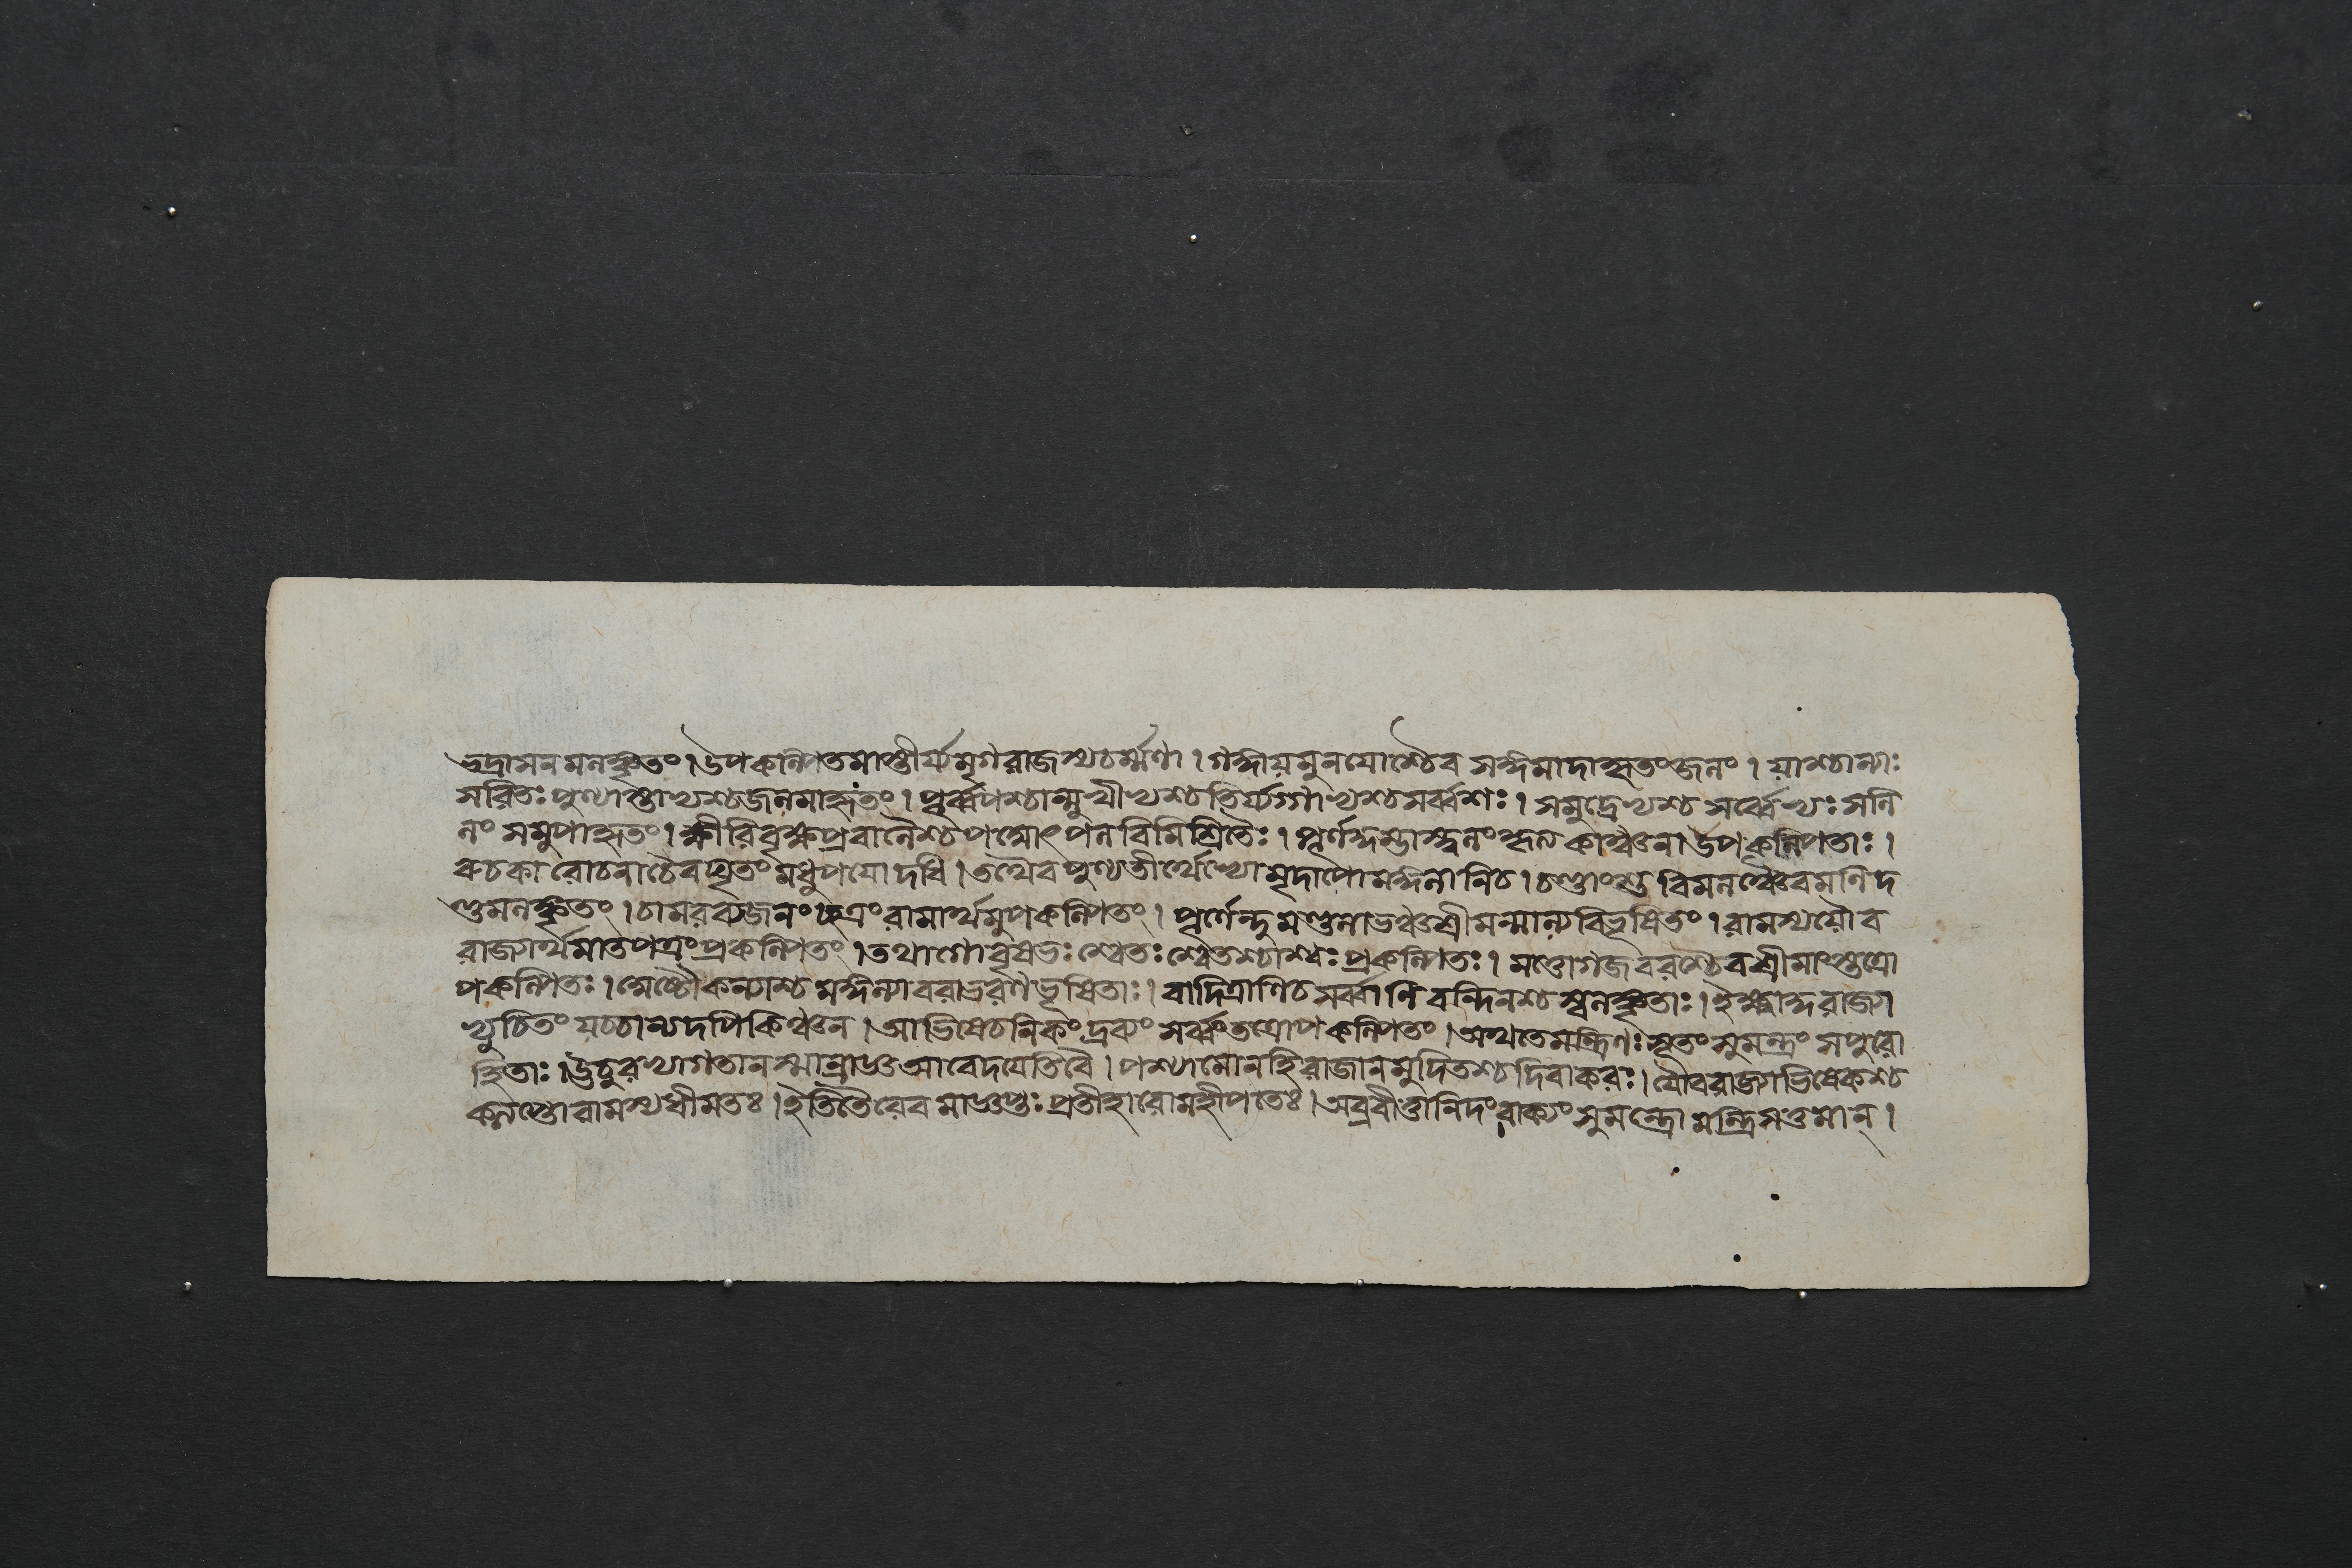 ভদ্রাসনমলঙ্কৃতং। উপকল্পিতমাস্তীর্য্য মৃগরাজস্যচর্ম্মণা। গঙ্গাযমুনযোশ্চৈব সঙ্গমাদাহৃতং জলং। যাশ্চান্যাঃ
সরিতঃ পুণ্যাস্তাভ্যশ্চজলমাহৃতং। পূর্ব্বপশ্চান্মুখীভ্যশ্চ তির্য্যগ্গাভ্যশ্চ সর্ব্বশঃ। সমুদ্রেভ্যশ্চ সর্ব্বেভ্যঃ সলি
লং সমুপাহৃতং। ক্ষীরিবৃক্ষপ্রবালৈশ্চ পদ্মোৎপলবিমিশ্রিতৈঃ। পূর্ণ কাঞ্চনা উপকল্পিতাঃ।
রুচকা রোচনাচৈব ঘৃতং মধুপযো দধি। তথৈব পুণ্যতীর্থেভ্যো মৃদাপো মঙ্গলানিচ। চণ্ডাংশু বিমলঞ্চৈব মণিদ
ণ্ডমলঙ্কৃতং। চামরব্যজনং ছত্রং রামার্থমুপকল্পিতং। পূর্ণেন্দুমণ্ডলাভঞ্চ শ্রীমন্মাল্যবিভূষিতং। রামস্যযৌব
রাজ্যার্থমাতপত্রং প্রকল্পিতং। তথাগোবৃষভঃ শ্বেতঃ শ্বেতশ্চাশ্বঃ প্রকল্পিতঃ। মত্তোগজবরশ্চৈব শ্রীমাংস্তত্রো
পকল্পিতঃ। অষ্টৌকন্যাশ্চ মঙ্গল্যা বরাভরণভূষিতাঃ। বাদিত্রাণিচ সর্ব্বাণি বন্দিনশ্চ স্বলঙ্কৃতাঃ। ইক্ষ্বাকূরাজ্যা
ভ্যুচিতং যচ্চান্যদপিকিঞ্চন। আভিষেচনিকং দ্রব্যং সর্ব্বং তত্রোপকল্পিতং। অথতেমন্ত্রিণঃ সূতং সুমন্ত্রং সপুরো
হিতাঃ। ঊচুরভ্যাগতানস্মান্রাজ্ঞ আবেদযেতিবৈ। পশ্যামোনহিরাজানমুদিতশ্চ দিবাকরঃ। যৌবরাজ্যাভিষেকশ্চ
কॢপ্তোরামস্যধীমতঃ। ইতিতৈরেব মাজ্ঞপ্তঃ প্রতীহারোমহীপতেঃ। অব্রবীত্তানিদং বাক্যং সুমন্ত্রো মন্ত্রিসত্তমান্।